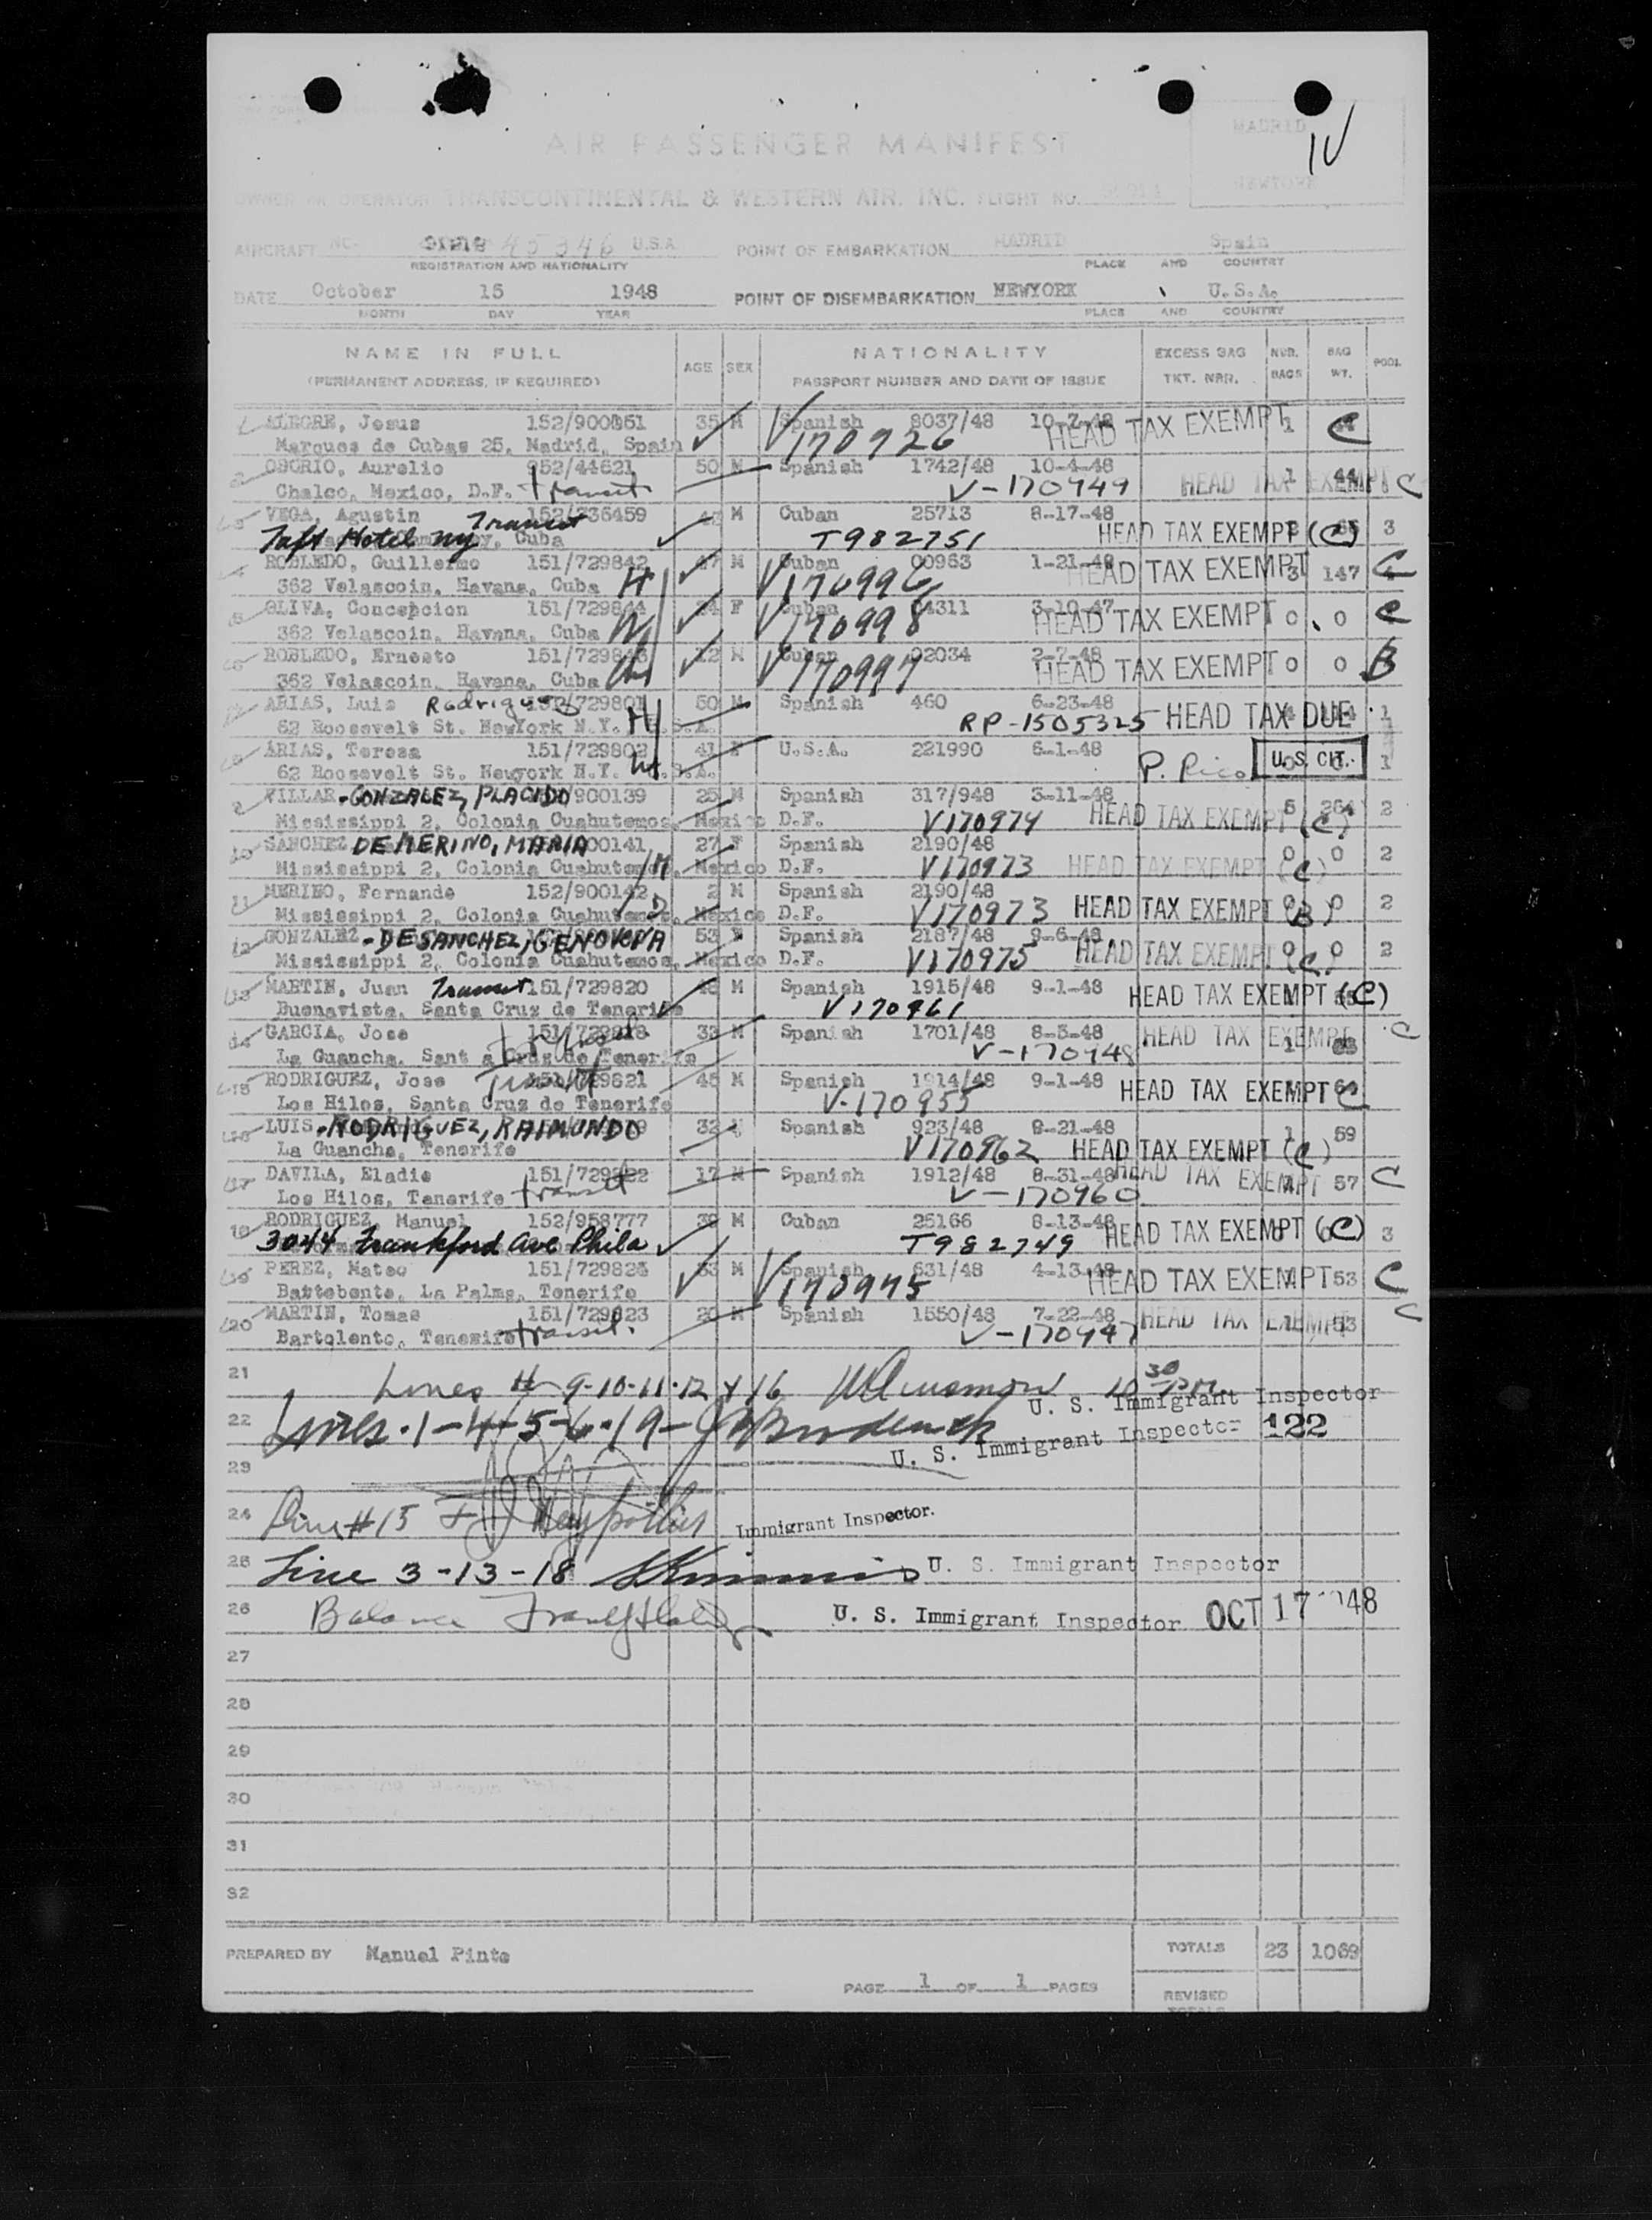 MADRID
IV
AIR PASSENGER MANIFEST
NEWYORK
OWNER OR OPERATOR TRANSCONTINENTAL & WESTERN AIR, INC. FLIGHT NO.
AIRCRAFT NC- 45346 U.S.A. POINT OF EMBARKATION MADRID Spain
REGISTRATION AND NATIONALITY PLACE AND COUNTRY
DATE October 15 1948 POINT OF DISEMBARKATION NEWYORK U.S.A.
MONTH DAY YEAR PLACE AND COUNTRY
NAME IN FULL AGE SEX NATIONALITY EXCESS BAG NUB. BAG POOL
(PERMANENT ADDRESS, IF REQUIRED) PASSPORT NUMBER AND DATE OF ISSUE TKT. NBR. BAGS WT.
1 ALEGRE, Jesus 152/900861 35 M Spanish 8037/48 10-7-48 HEAD TAX EXEMPT 1 C
Marques de Cubas 25, Madrid, Spain V170926
2 OSORIO, Aurelio 952/44621 50 M Spanish 1742/48 10-4-48 HEAD TAX EXEMPT 1 44 C
Chalco, Mexico, D.F. transit V-170949
3 VEGA, Agustin Transit 152/736459 M Cuban 25713 8-17-48 HEAD TAX EXEMPT (C) 3
Taft Hotel ny Cuba T982751
4 ROBLEDO, Guillermo 151/729842 47 M Cuban 00963 1-21-48 HEAD TAX EXEMPT 3 147 C
362 Velascoin, Havana, Cuba H V170996
5 OLIVA, Concepcion 151/729844 F Cuban 04311 3-10-47 HEAD TAX EXEMPT 0 0 C
362 Velascoin, Havana, Cuba W V170998
6 ROBLEDO, Ernesto 151/729843 12 M Cuban 02034 2-7-48 HEAD TAX EXEMPT 0 0 B
362 Velascoin, Havana, Cuba Ch V170997
7 ARIAS, Luis Rodriguez 151/729801 50 M Spanish 460 6-23-48 HEAD TAX DUE 1
62 Roosevelt St. NewYork N.Y. U.S.A. H RP-1505325
8 ARIAS, Teresa 151/729802 41 F U.S.A. 221990 6-1-48 P. Rico U.S. CIT. 1
62 Roosevelt St. Newyork N.Y. U.S.A. W
9 VILLAR-GONZALEZ, PLACIDO 900139 25 M Spanish 317/948 3-11-48 HEAD TAX EXEMPT (C) 5 264 2
Mississippi 2, Colonia Cuahutemos, Mexico D.F. V170974
10 SANCHEZ DE MERINO, MARIA 900141 27 F Spanish 2190/48 HEAD TAX EXEMPT (C) 0 0 2
Mississippi 2, Colonia Cuahutemos, Mexico D.F. V170973
11 MERINO, Fernande 152/900142 2 M Spanish 2190/48 HEAD TAX EXEMPT (B) 0 0 2
Mississippi 2, Colonia Cuahutemos, Mexico D.F. V170973
12 GONZALEZ-DE SANCHEZ, GENOVOVA 53 F Spanish 2187/48 9-6-48 HEAD TAX EXEMPT (C) 0 0 2
Mississippi 2, Colonia Cuahutemos, Mexico D.F. V170975
13 MARTIN, Juan Transit 151/729820 M Spanish 1915/48 9-1-48 HEAD TAX EXEMPT (C)
Buenavista, Santa Cruz de Tenerife V170961
14 GARCIA, Jose 33 M Spanish 1701/48 8-5-48 HEAD TAX EXEMPT 1 C
La Guancha, Sant a Cruz de Tenerife Transit V-170948
15 RODRIGUEZ, Jose Transit 151/729821 45 M Spanish 1914/48 9-1-48 HEAD TAX EXEMPT C
Los Hilos, Santa Cruz de Tenerife V-170955
16 LUIS-RODRIGUEZ, RAIMUNDO 32 M Spanish 923/48 8-21-48 HEAD TAX EXEMPT (C) 1 59
La Guancha, Tenerife V170962
17 DAVILA, Eladie 151/729822 17 M Spanish 1912/48 8-31-48 HEAD TAX EXEMPT 57 C
Los Hilos, Tenerife transit V-170960
18 RODRIGUEZ, Manuel 152/958777 39 M Cuban 25166 8-13-48 HEAD TAX EXEMPT (C) 3
3044 Frankford Ave Phila T982749
19 PEREZ, Mateo 151/729825 53 M Spanish 631/48 4-13-48 HEAD TAX EXEMPT 53 C
Battebente, La Palma, Tenerife V170975
20 MARTIN, Tomas 151/729823 20 M Spanish 1550/48 7-22-48 HEAD TAX EXEMPT 1 53 C
Bartolento, Tenerife transit. V-170947
21 Lines # 9-10-11-12 & 16 10 30 PM U. S. Immigrant Inspector
22 Lines-1-4-5-6-19- U. S. Immigrant Inspector 122
23
24 Line #15 Immigrant Inspector.
25 Line 3-13-18 U. S. Immigrant Inspector
26 Balance U. S. Immigrant Inspector OCT 17 1948
27
28
29
30
31
32
PREPARED BY Manuel Pinte TOTALS 23 1069
PAGE 1 OF 1 PAGES REVISED TOTALS